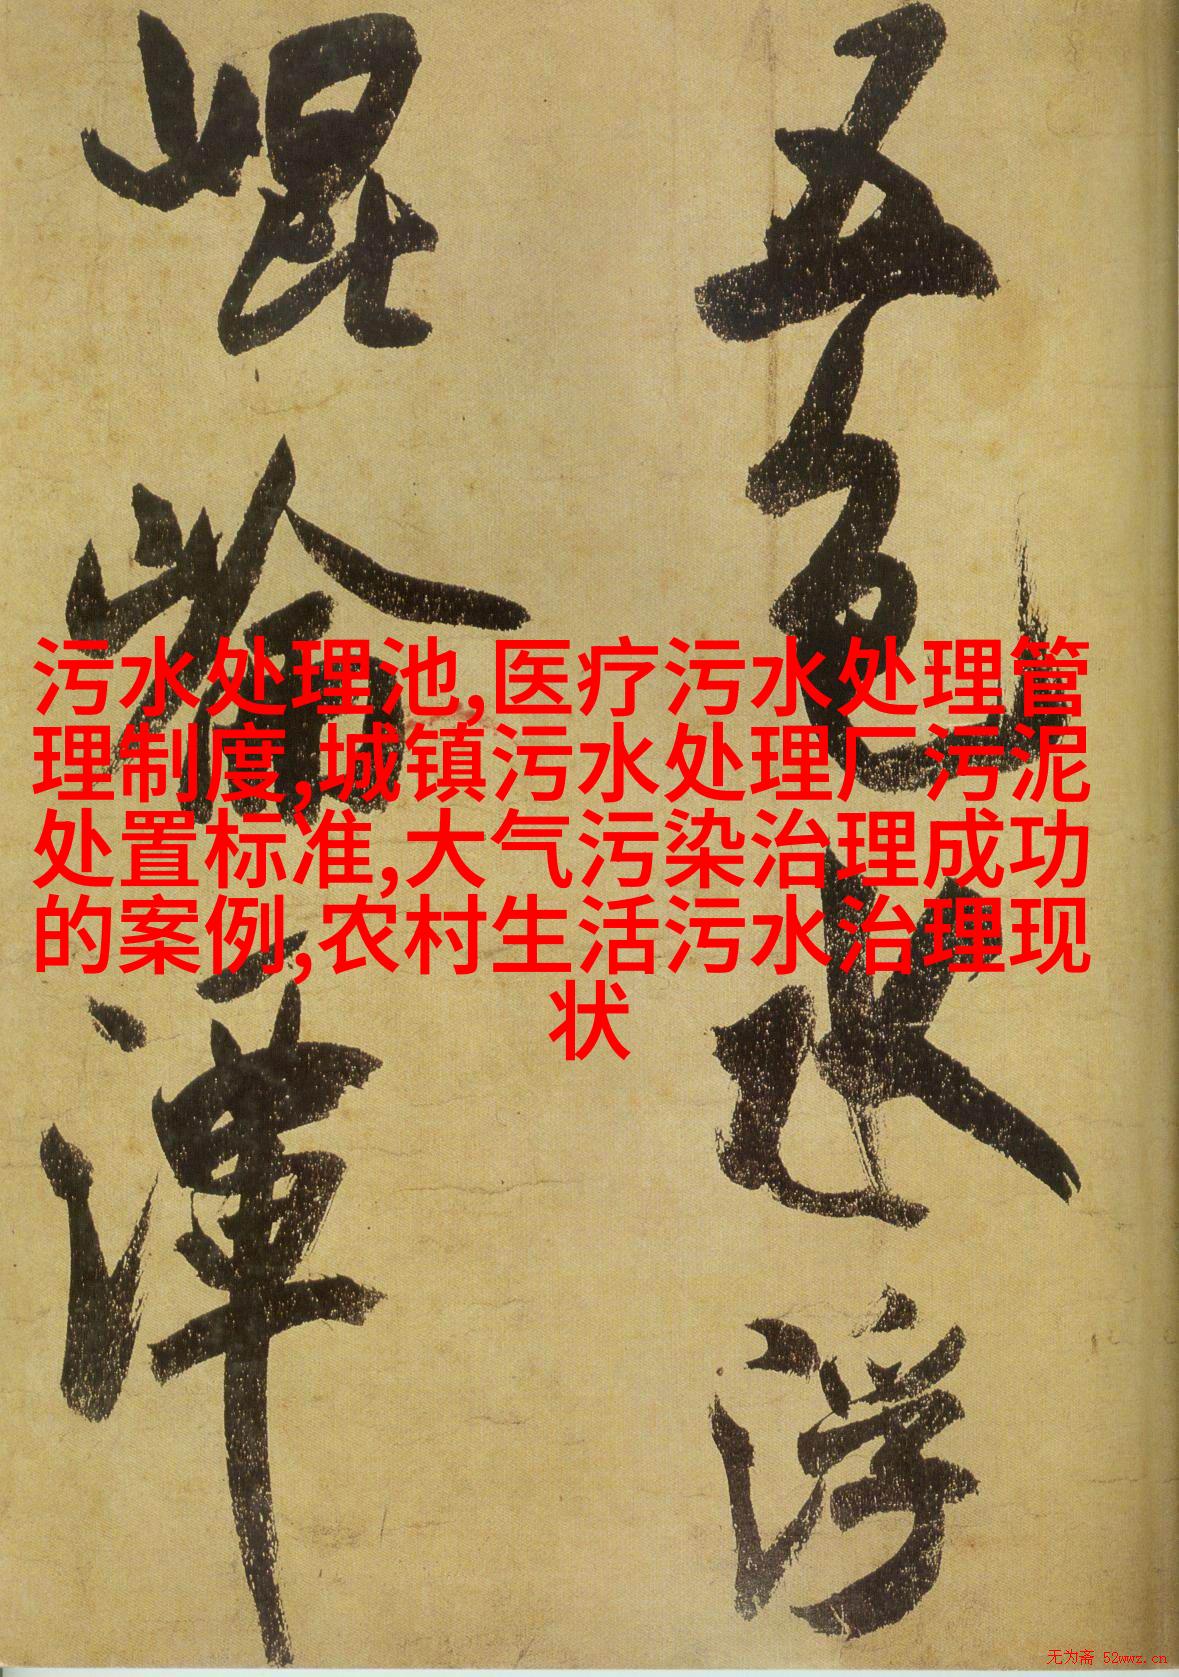 五色水浮
崐崘渾
污水处理池,医疗污水处理管
理制度,城镇污水处理厂污泥
处置标准,大气污染治理成功
的案例,农村生活污水治理现
状
无为斋 52wwz.cn